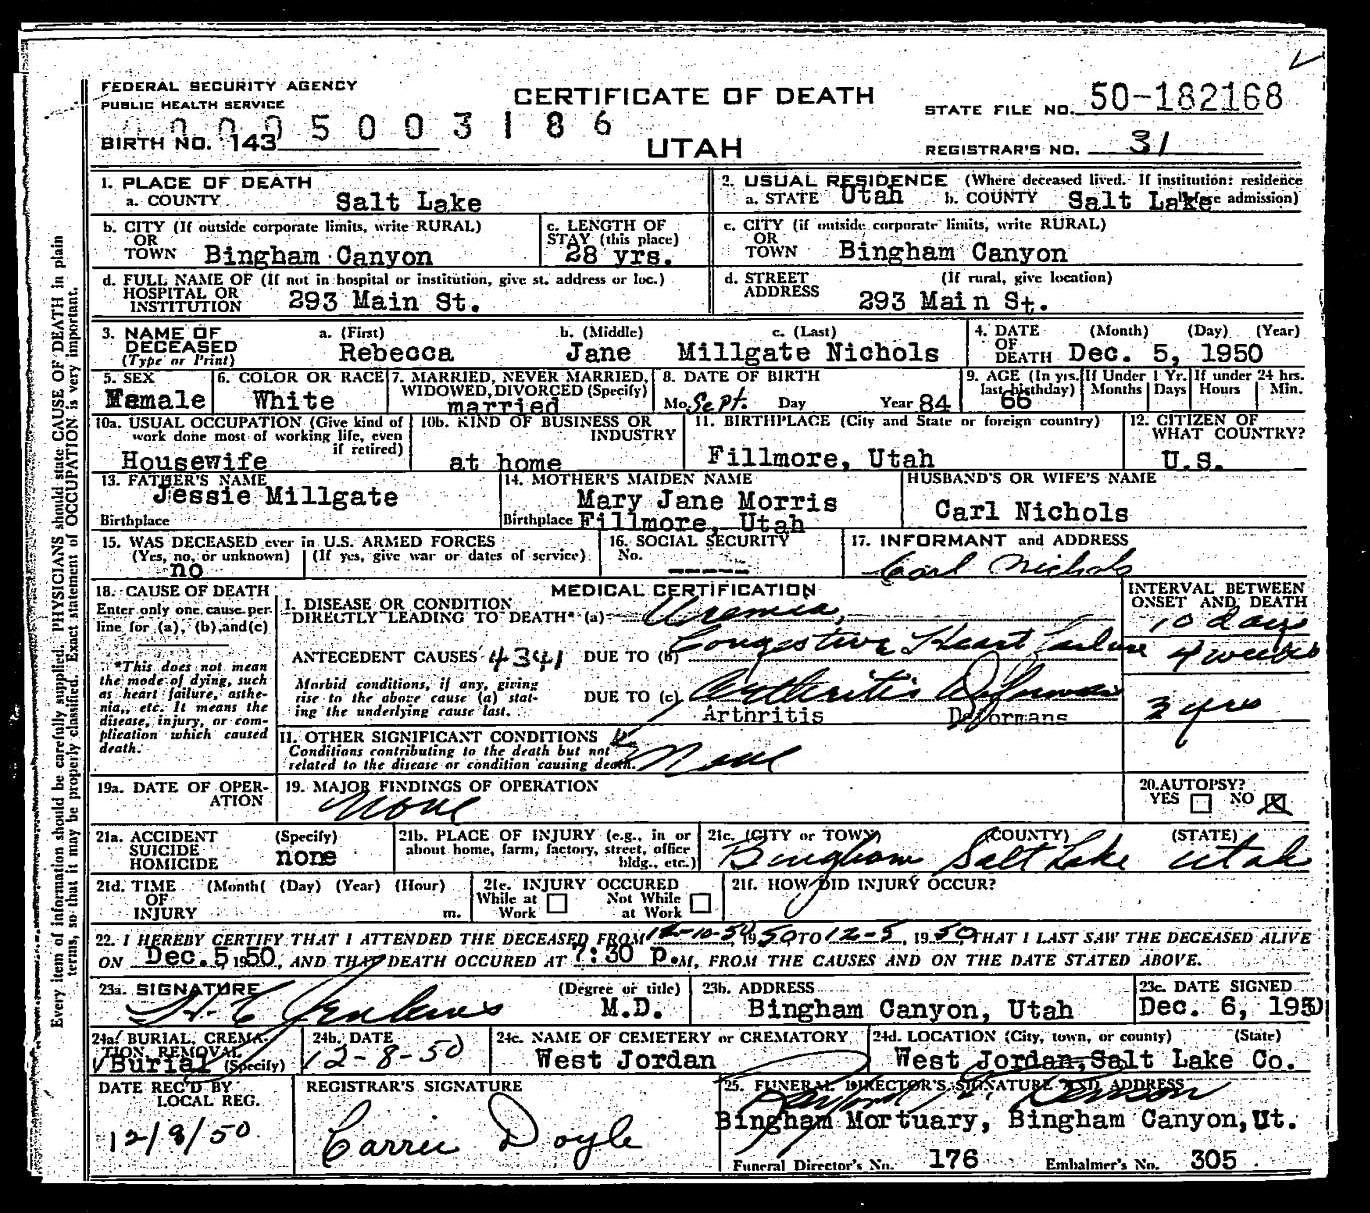 FEDERAL SECURITY AGENCY
PUBLIC HEALTH SERVICE
CERTIFICATE OF DEATH
STATE FILE NO. 50-182168
00005003186
BIRTH NO. 143
UTAH
REGISTRAR'S NO. 31
1. PLACE OF DEATH
a. COUNTY Salt Lake
2. USUAL RESIDENCE (Where deceased lived. If institution: residence before admission)
a. STATE Utah b. COUNTY Salt Lake
b. CITY (If outside corporate limits, write RURAL)
OR
TOWN Bingham Canyon
c. LENGTH OF
STAY (this place)
28 yrs.
c. CITY (if outside corporate limits, write RURAL)
OR
TOWN Bingham Canyon
d. FULL NAME OF (If not in hospital or institution, give st. address or loc.)
HOSPITAL OR
INSTITUTION 293 Main St.
d. STREET (If rural, give location)
ADDRESS 293 Main St.
3. NAME OF DECEASED
(Type or Print)
a. (First) b. (Middle) c. (Last)
Rebecca Jane Millgate Nichols
4. DATE OF DEATH (Month) (Day) (Year)
Dec. 5, 1950
5. SEX
Female
6. COLOR OR RACE
White
7. MARRIED, NEVER MARRIED,
WIDOWED, DIVORCED (Specify)
married
8. DATE OF BIRTH
Mo. Sept. Day Year 84
9. AGE (In yrs. last birthday)
66
If Under 1 Yr. Months Days
If under 24 hrs. Hours Min.
10a. USUAL OCCUPATION (Give kind of
work done most of working life, even
if retired)
Housewife
10b. KIND OF BUSINESS OR
INDUSTRY
at home
11. BIRTHPLACE (City and State or foreign country)
Fillmore, Utah
12. CITIZEN OF
WHAT COUNTRY?
U.S.
13. FATHER'S NAME
Jessie Millgate
Birthplace
14. MOTHER'S MAIDEN NAME
Mary Jane Morris
Birthplace Fillmore, Utah
HUSBAND'S OR WIFE'S NAME
Carl Nichols
15. WAS DECEASED ever in U.S. ARMED FORCES
(Yes, no, or unknown) (If yes, give war or dates of service)
no
16. SOCIAL SECURITY
No. -----
17. INFORMANT and ADDRESS
Carl Nichols
18. CAUSE OF DEATH
Enter only one cause per
line for (a), (b), and (c)
*This does not mean
the mode of dying, such
as heart failure, asthe-
nia, etc. It means the
disease, injury, or com-
plication which caused
death.
MEDICAL CERTIFICATION
I. DISEASE OR CONDITION
DIRECTLY LEADING TO DEATH* (a) Uremia,
ANTECEDENT CAUSES 4341 DUE TO (b) Congestive Heart Failure
Morbid conditions, if any, giving
rise to the above cause (a) stat-
ing the underlying cause last.
DUE TO (c) Arthritis Deformans
Arthritis Deformans
INTERVAL BETWEEN
ONSET AND DEATH
10 days
4 weeks
3 yrs
II. OTHER SIGNIFICANT CONDITIONS
Conditions contributing to the death but not
related to the disease or condition causing death.
None
19a. DATE OF OPER-
ATION
19. MAJOR FINDINGS OF OPERATION
None
20. AUTOPSY?
YES NO X
21a. ACCIDENT
SUICIDE
HOMICIDE
(Specify)
none
21b. PLACE OF INJURY (e.g., in or
about home, farm, factory, street, office
bldg., etc.)
21c. (CITY or TOWN) (COUNTY) (STATE)
Bingham Salt Lake Utah
21d. TIME (Month( (Day) (Year) (Hour)
OF
INJURY m.
21e. INJURY OCCURED
While at Work Not While at Work
21f. HOW DID INJURY OCCUR?
22. I HEREBY CERTIFY THAT I ATTENDED THE DECEASED FROM 12-10-50, 1950 TO 12-5, 1950, THAT I LAST SAW THE DECEASED ALIVE
ON Dec. 5, 1950, AND THAT DEATH OCCURED AT 7:30 p.M, FROM THE CAUSES AND ON THE DATE STATED ABOVE.
23a. SIGNATURE (Degree or title)
Jenkins M.D.
23b. ADDRESS
Bingham Canyon, Utah
23c. DATE SIGNED
Dec. 6, 1950
24a. BURIAL, CREMA-
TION, REMOVAL
Burial (Specify)
24b. DATE
12-8-50
24c. NAME OF CEMETERY OR CREMATORY
West Jordan
24d. LOCATION (City, town, or county) (State)
West Jordan, Salt Lake Co.
DATE REC'D BY
LOCAL REG.
12/8/50
REGISTRAR'S SIGNATURE
Carrie Doyle
25. FUNERAL DIRECTOR'S SIGNATURE AND ADDRESS
Bingham Mortuary, Bingham Canyon, Ut.
Funeral Director's No. 176 Embalmer's No. 305
Every item of information should be carefully supplied. PHYSICIANS should state CAUSE OF DEATH in plain
terms, so that it may be properly classified. Exact statement of OCCUPATION is very important.